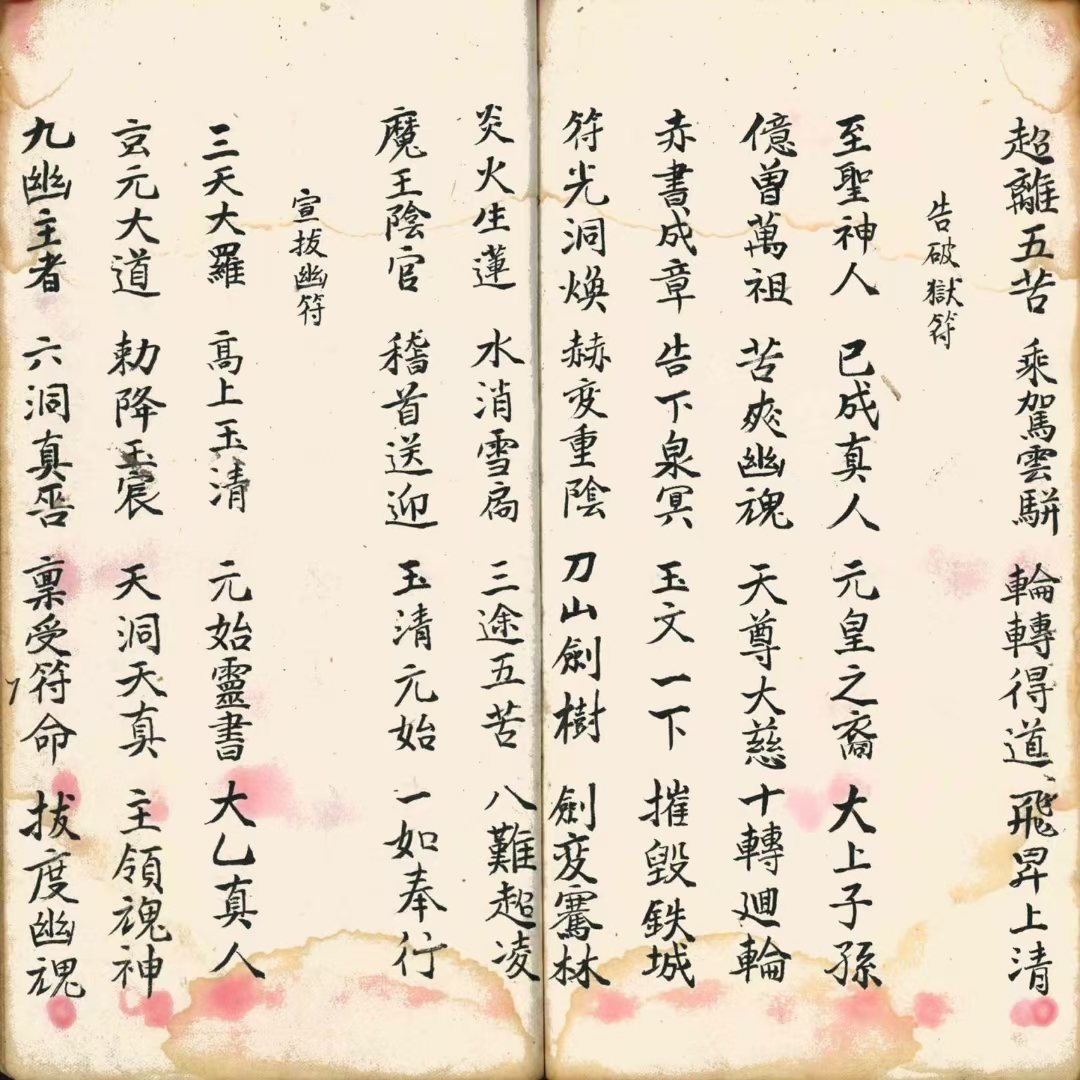 超離五苦 乘駕雲駢 輪轉得道 飛昇上清
告破獄符
至聖神人 已成真人 元皇之裔 大上子孫
億曽萬祖 苦爽幽魂 天尊大慈 十轉廻輪
赤書成章 告下泉冥 玉文一下 摧毀鉄城
符光洞煥 赫変重陰 刀山劍樹 劍変騫林
炎火生蓮 水消雪扃 三途五苦 八難超凌
魔王陰官 稽首送迎 玉清元始 一如奉行
宣拔幽符
三天大羅 高上玉清 元始靈書 大乙真人
玄元大道 勅降玉宸 天洞天真 主領魂神
九幽主者 六洞真 稟受符命 拔度幽魂